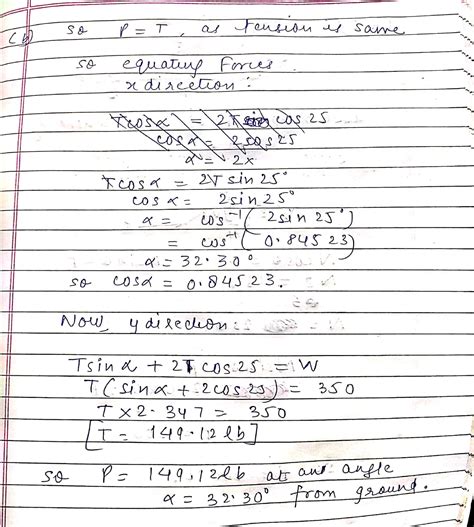 (b) so P = T, as tension is same
so equating Forces
x direction:
Tcosα = 2T sin cos 25
cosα = 2cos 25
α = 2x
Tcosα = 2T sin 25°
cosα = 2sin25°
α = cos⁻¹(2sin 25°)
= cos⁻¹(0.84523)
α = 32.30°
so cosα = 0.84523.
Now, y direction:
Tsinα + 2T cos25 = W
T(sinα + 2cos25) = 350
T × 2.347 = 350
[T = 149.12lb]
so P = 149.12lb at an angle
α = 32.30° from ground.